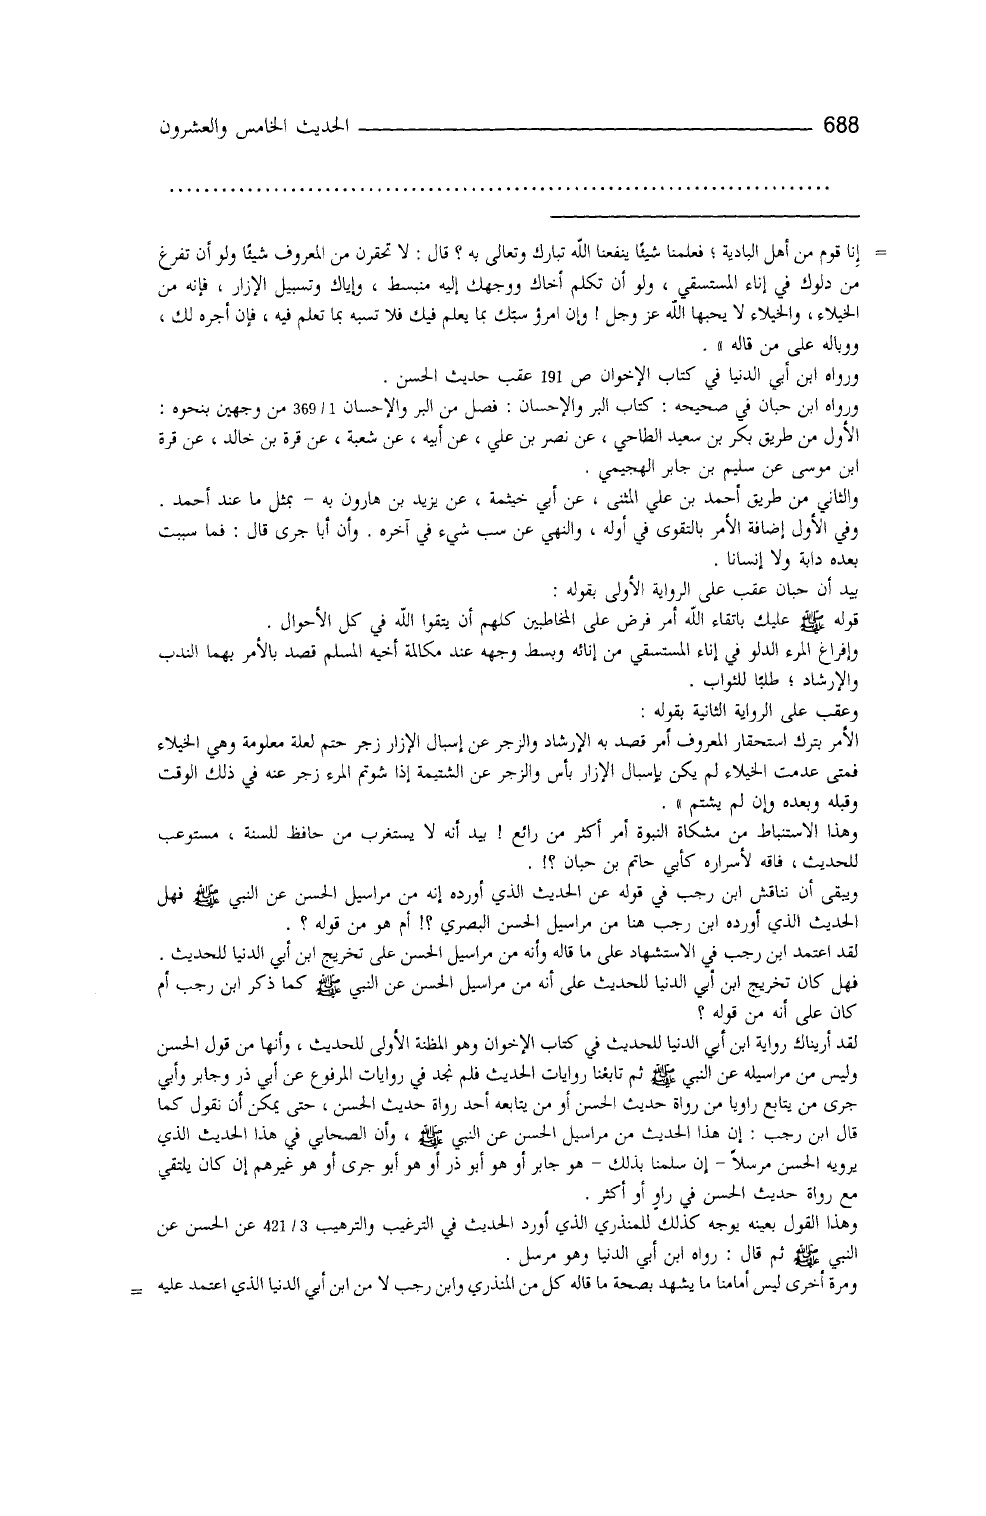 688 الحديث الخامس والعشرون
................................................................................
= إنا قوم من أهل البادية ؛ فعلمنا شيئًا ينفعنا اللّه تبارك وتعالى به ؟ قال : لا تحقرن من المعروف شيئًا ولو أن تفرغ
من دلوك في إناء المستسقي ، ولو أن تكلم أخاك ووجهك إليه منبسط ، وإياك وتسبيل الإزار ، فإنه من
الخيلاء ، والخيلاء لا يحبها اللّه عز وجل ! وإن امرؤ سبّك بما يعلم فيك فلا تسبه بما تعلم فيه ، فإن أجره لك ،
ووباله على من قاله » .
ورواه ابن أبي الدنيا في كتاب الإخوان ص 191 عقب حديث الحسن .
ورواه ابن حبان في صحيحه : كتاب البر والإحسان : فصل من البر والإحسان 1/ 369 من وجهين بنحوه :
الأول من طريق بكر بن سعيد الطاحي ، عن نصر بن علي ، عن أبيه ، عن شعبة ، عن قرة بن خالد ، عن قرة
ابن موسى عن سليم بن جابر الهجيمي .
والثاني من طريق أحمد بن علي المثنى ، عن أبي خيثمة ، عن يزيد بن هارون به - بمثل ما عند أحمد .
وفي الأول إضافة الأمر بالتقوى في أوله ، والنهي عن سب شيء في آخره . وأن أبا جرى قال : فما سببت
بعده دابة ولا إنسانا .
بيد أن حبان عقب على الرواية الأولى بقوله :
قوله ﷺ عليك باتقاء اللّه أمر فرض على المخاطبين كلهم أن يتقوا اللّه في كل الأحوال .
وإفراغ المرء الدلو في إناء المستسقي من إنائه وبسط وجهه عند مكالمة أخيه المسلم قصد بالأمر بهما الندب
والإرشاد ؛ طلبًا للثواب .
وعقب على الرواية الثانية بقوله :
الأمر بترك استحقار المعروف أمر قصد به الإرشاد والزجر عن إسبال الإزار زجر حتم لعلة معلومة وهي الخيلاء
فمتى عدمت الخيلاء لم يكن بإسبال الإزار بأس والزجر عن الشتيمة إذا شوتم المرء زجر عنه في ذلك الوقت
وقبله وبعده وإن لم يشتم » .
وهذا الاستنباط من مشكاة النبوة أمر أكثر من رائع ! بيد أنه لا يستغرب من حافظ للسنة ، مستوعب
للحديث ، فاقه لأسراره كأبي حاتم بن حبان ؟! .
ويبقى أن نناقش ابن رجب في قوله عن الحديث الذي أورده إنه من مراسيل الحسن عن النبي ﷺ فهل
الحديث الذي أورده ابن رجب هنا من مراسيل الحسن البصري ؟! أم هو من قوله ؟ .
لقد اعتمد ابن رجب في الاستشهاد على ما قاله وأنه من مراسيل الحسن على تخريج ابن أبي الدنيا للحديث .
فهل كان تخريج ابن أبي الدنيا للحديث على أنه من مراسيل الحسن عن النبي ﷺ كما ذكر ابن رجب أم
كان على أنه من قوله ؟
لقد أريناك رواية ابن أبي الدنيا للحديث في كتاب الإخوان وهو المظنة الأولى للحديث ، وأنها من قول الحسن
وليس من مراسيله عن النبي ﷺ ثم تابعْنا روايات الحديث فلم نجد في روايات المرفوع عن أبي ذر وجابر وأبي
جرى من يتابع راويا من رواة حديث الحسن أو من يتابعه أحد رواة حديث الحسن ، حتى يمكن أن نقول كما
قال ابن رجب : إن هذا الحديث من مراسيل الحسن عن النبي ﷺ ، وأن الصحابي في هذا الحديث الذي
يرويه الحسن مرسلاً - إن سلمنا بذلك - هو جابر أو هو أبو ذر أو هو أبو جرى أو هو غيرهم إن كان يلتقي
مع رواة حديث الحسن في راوٍ أو أكثر .
وهذا القول بعينه يوجه كذلك للمنذري الذي أورد الحديث في الترغيب والترهيب 3/ 421 عن الحسن عن
النبي ﷺ ثم قال : رواه ابن أبي الدنيا وهو مرسل .
ومرة أخرى ليس أمامنا ما يشهد بصحة ما قاله كل من المنذري وابن رجب لا من ابن أبي الدنيا الذي اعتمد عليه =